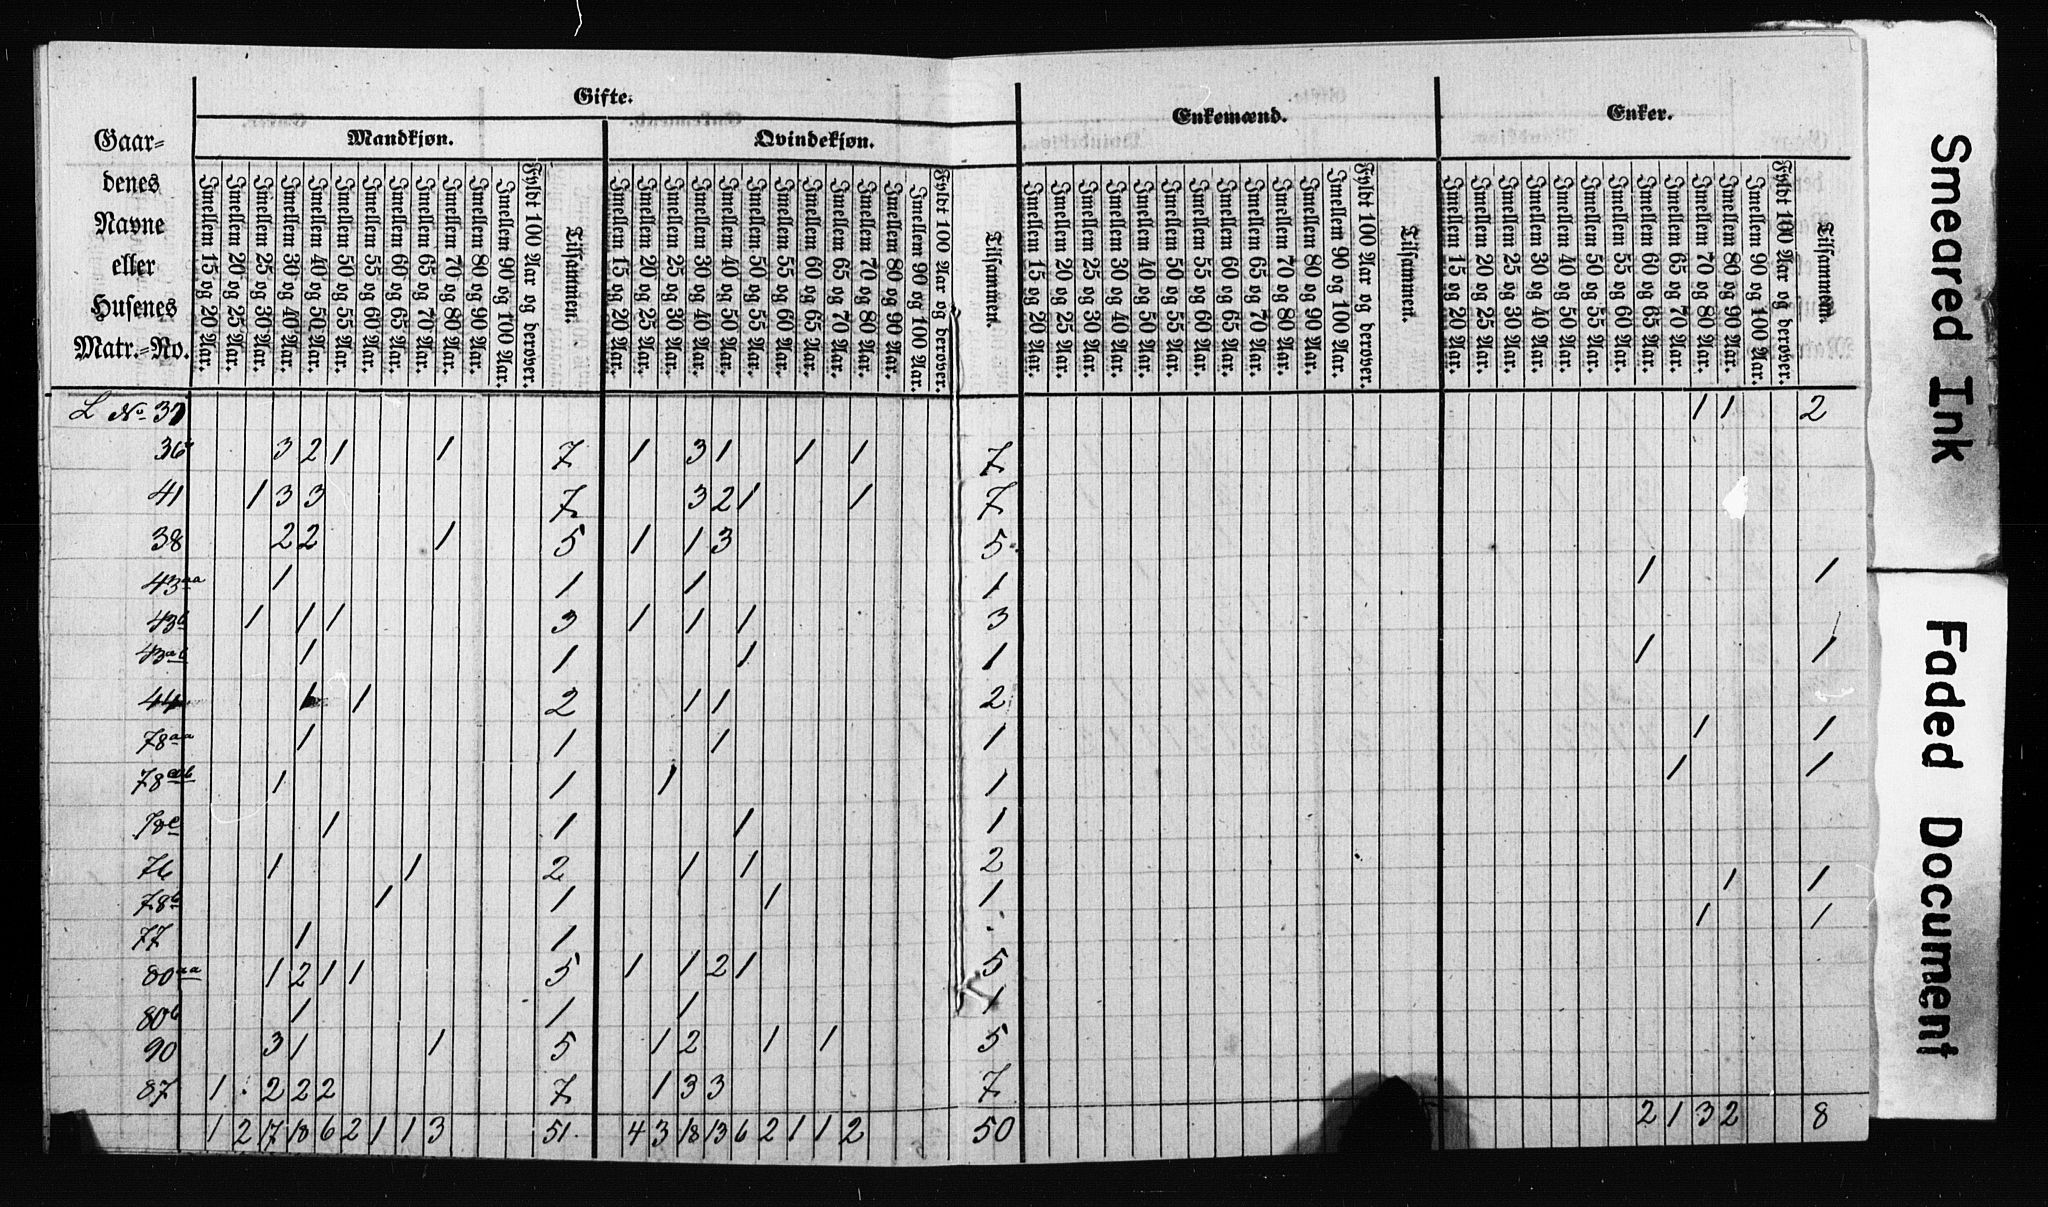 Gaardenes Navne eller Husenes Matr.=No.
Gifte.
Enkemænd.
Enker.
Mandkjøn.
Qvindekjøn.
Imellem 15 og 20 Aar. Imellem 20 og 25 Aar. Imellem 25 og 30 Aar. Imellem 30 og 40 Aar. Imellem 40 og 50 Aar. Imellem 50 og 55 Aar. Imellem 55 og 60 Aar. Imellem 60 og 65 Aar. Imellem 65 og 70 Aar. Imellem 70 og 80 Aar. Imellem 80 og 90 Aar. Imellem 90 og 100 Aar. Fyldt 100 Aar og derover. Tilsammen.
Imellem 15 og 20 Aar. Imellem 20 og 25 Aar. Imellem 25 og 30 Aar. Imellem 30 og 40 Aar. Imellem 40 og 50 Aar. Imellem 50 og 55 Aar. Imellem 55 og 60 Aar. Imellem 60 og 65 Aar. Imellem 65 og 70 Aar. Imellem 70 og 80 Aar. Imellem 80 og 90 Aar. Imellem 90 og 100 Aar. Fyldt 100 Aar og derover. Tilsammen.
Imellem 15 og 20 Aar. Imellem 20 og 25 Aar. Imellem 25 og 30 Aar. Imellem 30 og 40 Aar. Imellem 40 og 50 Aar. Imellem 50 og 55 Aar. Imellem 55 og 60 Aar. Imellem 60 og 65 Aar. Imellem 65 og 70 Aar. Imellem 70 og 80 Aar. Imellem 80 og 90 Aar. Imellem 90 og 100 Aar. Fyldt 100 Aar og derover. Tilsammen.
Imellem 15 og 20 Aar. Imellem 20 og 25 Aar. Imellem 25 og 30 Aar. Imellem 30 og 40 Aar. Imellem 40 og 50 Aar. Imellem 50 og 55 Aar. Imellem 55 og 60 Aar. Imellem 60 og 65 Aar. Imellem 65 og 70 Aar. Imellem 70 og 80 Aar. Imellem 80 og 90 Aar. Imellem 90 og 100 Aar. Fyldt 100 Aar og derover. Tilsammen.
L No. 37 1 1 2
36 3 2 1 1 7 1 3 1 1 1 7
41 1 3 3 7 3 2 1 1 7
38 2 2 1 5 1 1 3 5
43aa 1 1 1 1 1 1
43b 1 1 1 3 1 1 1 3
43ab 1 1 1 1 1 1
44 1 1 2 1 1 2
78aa 1 1 1 1 1 1
78ab 1 1 1 1 1 1
78c 1 1 1 1
76 1 1 2 1 1 2 1 1
78b 1 1 1 1 1 1
77 1 1 .
80aa 1 2 1 1 5 1 1 2 1 5
80b 1 1 1 1
90 3 1 1 5 1 2 1 1 5
87 1 2 2 2 7 1 3 3 7
1 2 17 18 6 2 1 1 3 51. 4 3 18 13 6 2 1 1 2 50 2 1 3 2 8
Smeared Ink
Faded Document